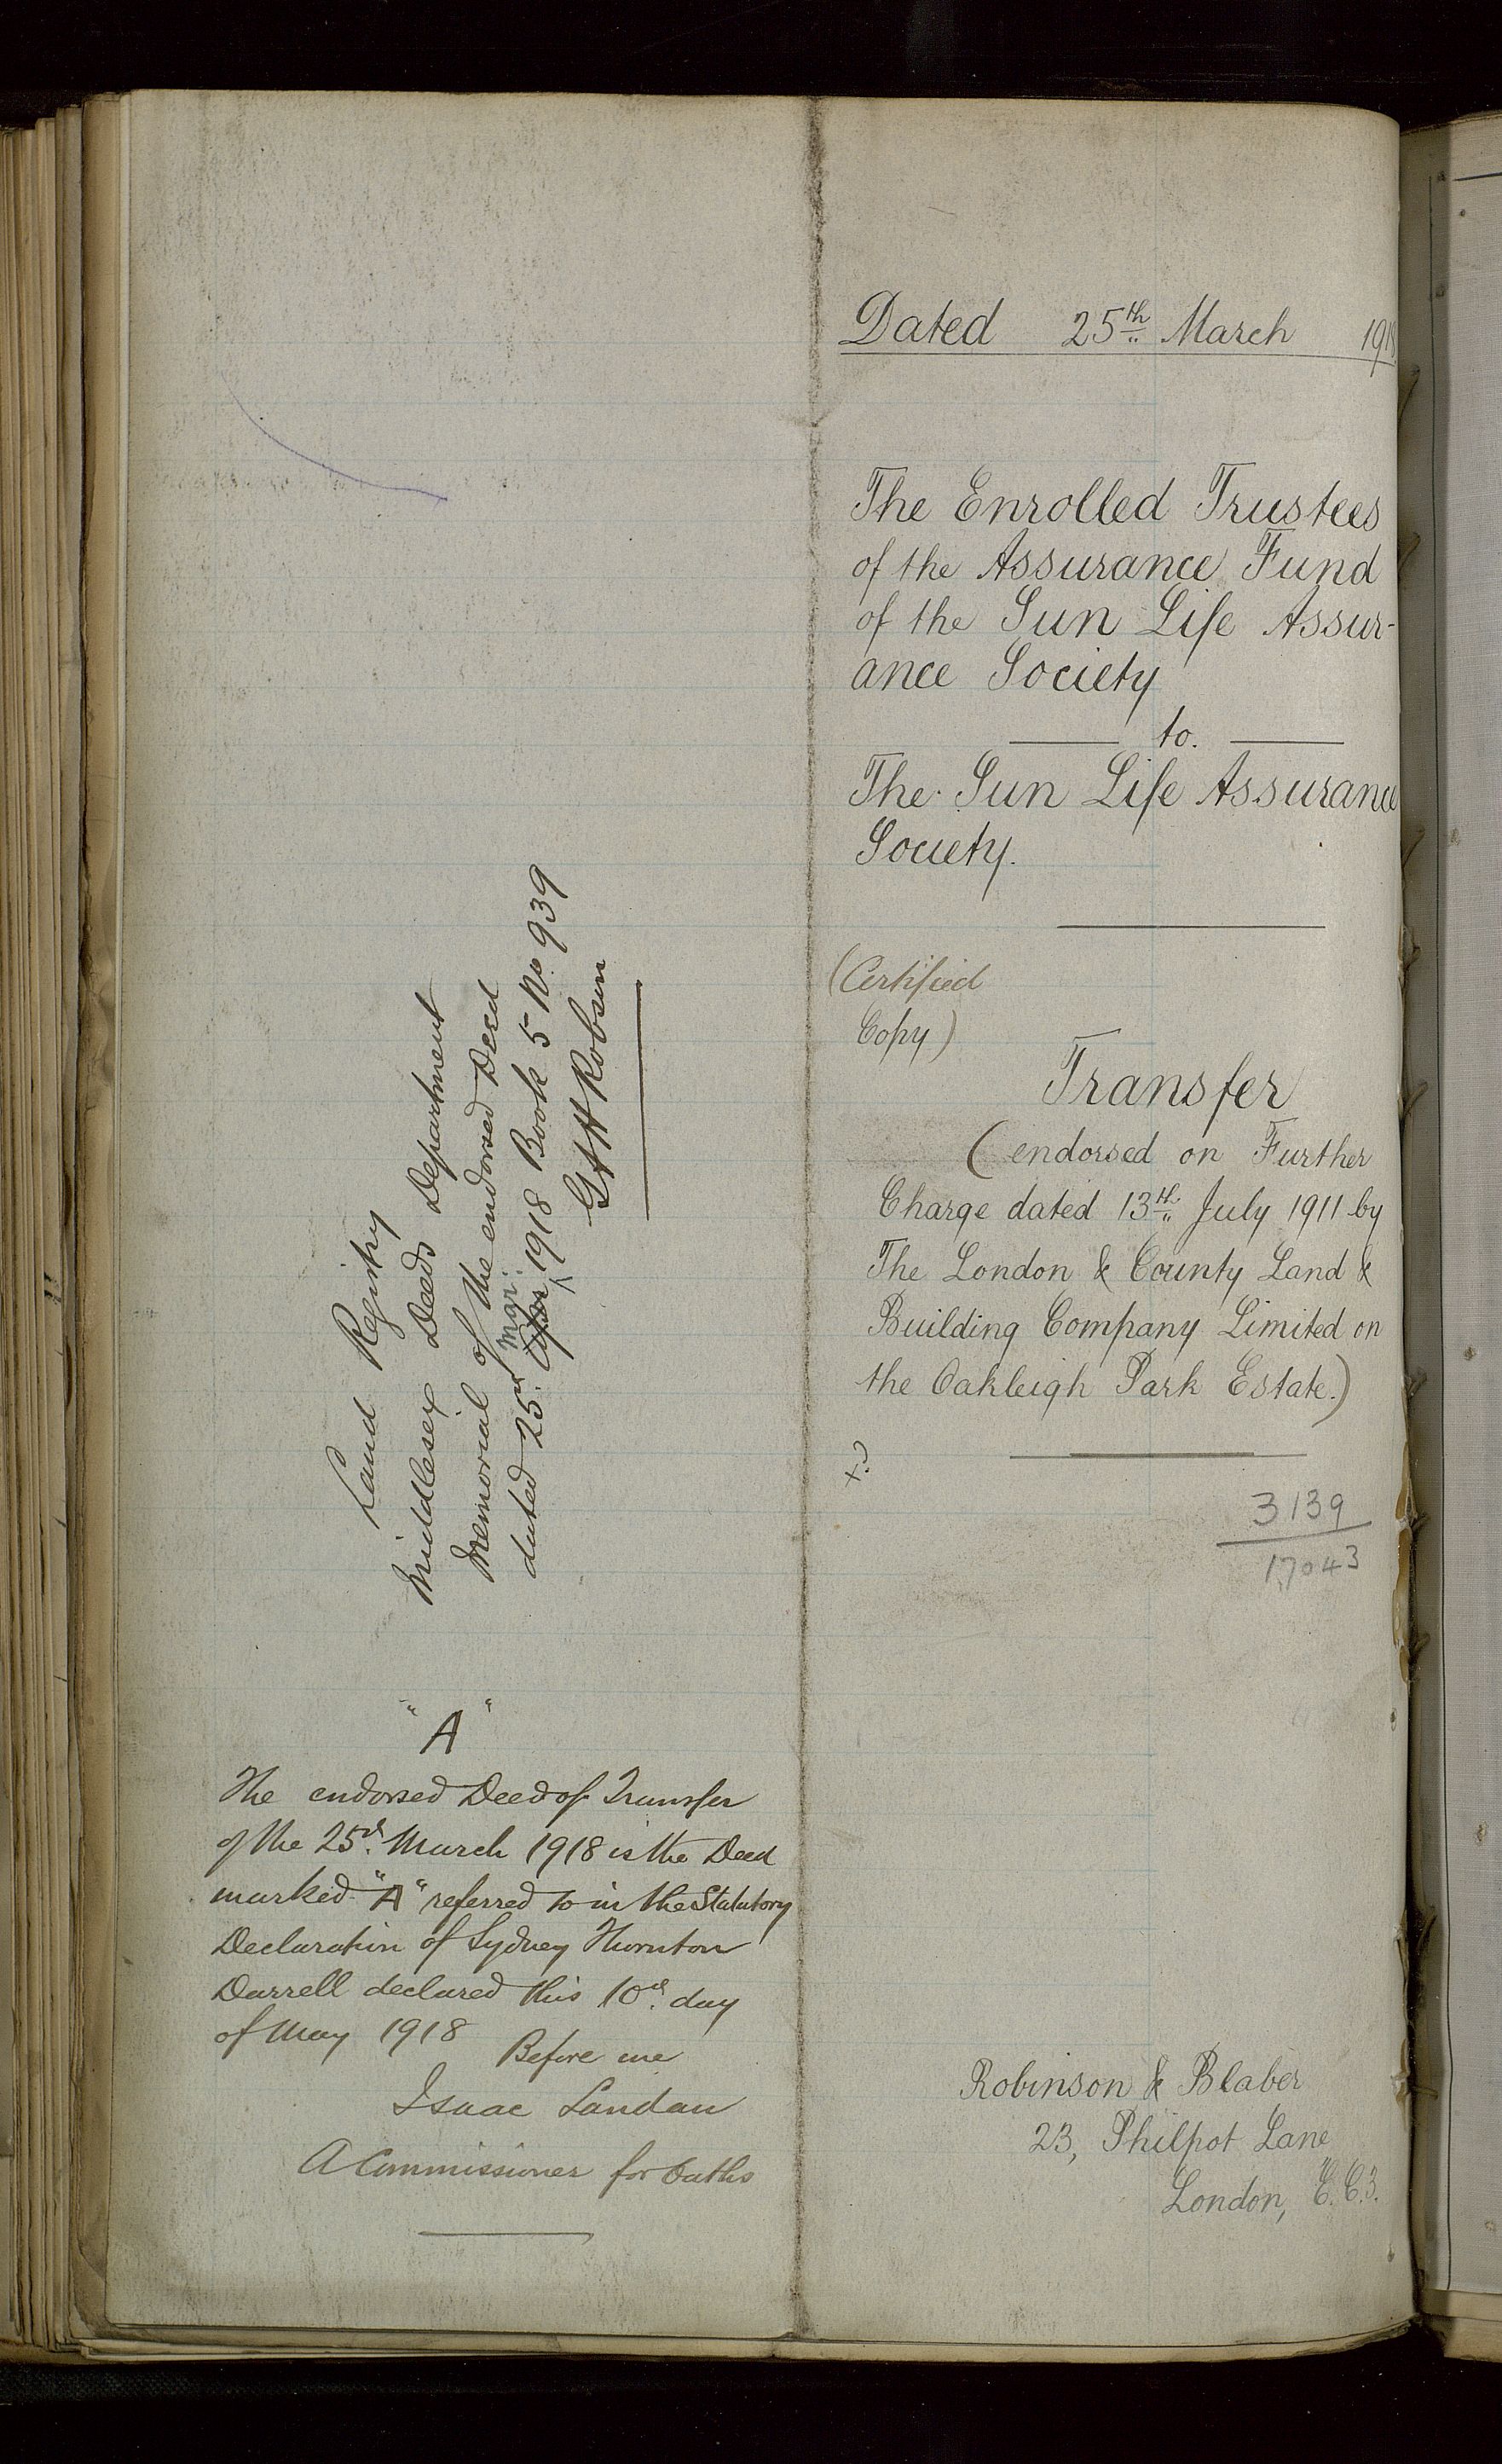 Land Registry
Middlesex Deeds Department
Memorial of the endorsed Deed
Mar:
dated 25th. Apr: 1918 Book 5 No. 939
G H Robson
"A"
The endorsed Deed of Transfer
of the 25th. March 1918 is the Deed
marked "A" referred to in the Statutory
Declaration of Sydney Thornton
Darrell declared this 10th. day
of May 1918
Before me
Isaac Landau
A Commissioner for Oaths
Dated 25th March 1918
The Enrolled Trustees
of the Assurance Fund
of the Sun Life Assur-
ance Society
to.
The Sun Life Assurance
Society.
(Certified
Copy)
Transfer
(endorsed on Further
Charge dated 13th July 1911 by
The London & County Land &
Building Company Limited on
the Oakleigh Park Estate.)
3139
17043
Robinson & Blaber
23, Philpot Lane
London, E.C.3.